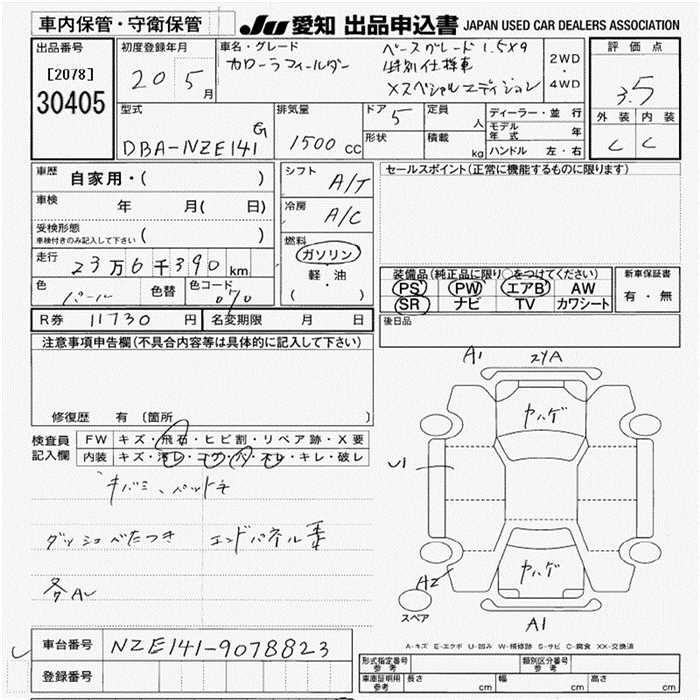 車内保管・守衛保管
JU 愛知 出品申込書 JAPAN USED CAR DEALERS ASSOCIATION
出品番号
[2078]
30405
初度登録年月
20 5月
車名・グレード
カローラフィールダー
ベースグレード 1.5X9
特別仕様車
Xスペシャルエディション
2WD
・
4WD
評価点
3.5
外装 内装
C C
型式
DBA-NZE141 G
排気量
1500 CC
ドア 5
形状
定員 人
積載 kg
ディーラー・並行
モデル年式 年
ハンドル 左・右
車歴 自家用・( )
車検 年 月( 日)
受検形態
車検付きのみ記入して下さい ( )
走行 23万6千390km
色 パール 色替 色コード 070
シフト A/T
冷房 A/C
燃料
ガソリン
軽・油
( )
セールスポイント(正常に機能するものに限ります)
装備品(純正品に限り○をつけてください)
PS PW エアB AW
SR ナビ TV カワシート
新車保証書
有・無
後日品
R券 11730 円 名変期限 月 日
注意事項申告欄(不具合内容等は具体的に記入して下さい)
修復歴 有 〔箇所 〕
検査員記入欄
FW キズ・飛石・ヒビ割・リペア跡・X要
内装 キズ・汚レ・コゲ・穴・スレ・キレ・破レ
ダッシュベたつき エンドパネル
各A
A1 2YA
ヤハゲ
U1
ヤハゲ
A2
スペア
A1
A-キズ E-エクボ U-凹み W-補修跡 S-サビ C-腐食 XX-交換済
車台番号 NZE141-9078823
登録番号
形式指定番号 参考
類別区分番号 参考
車庫証明用 参考 長さ cm 幅 cm 高さ cm